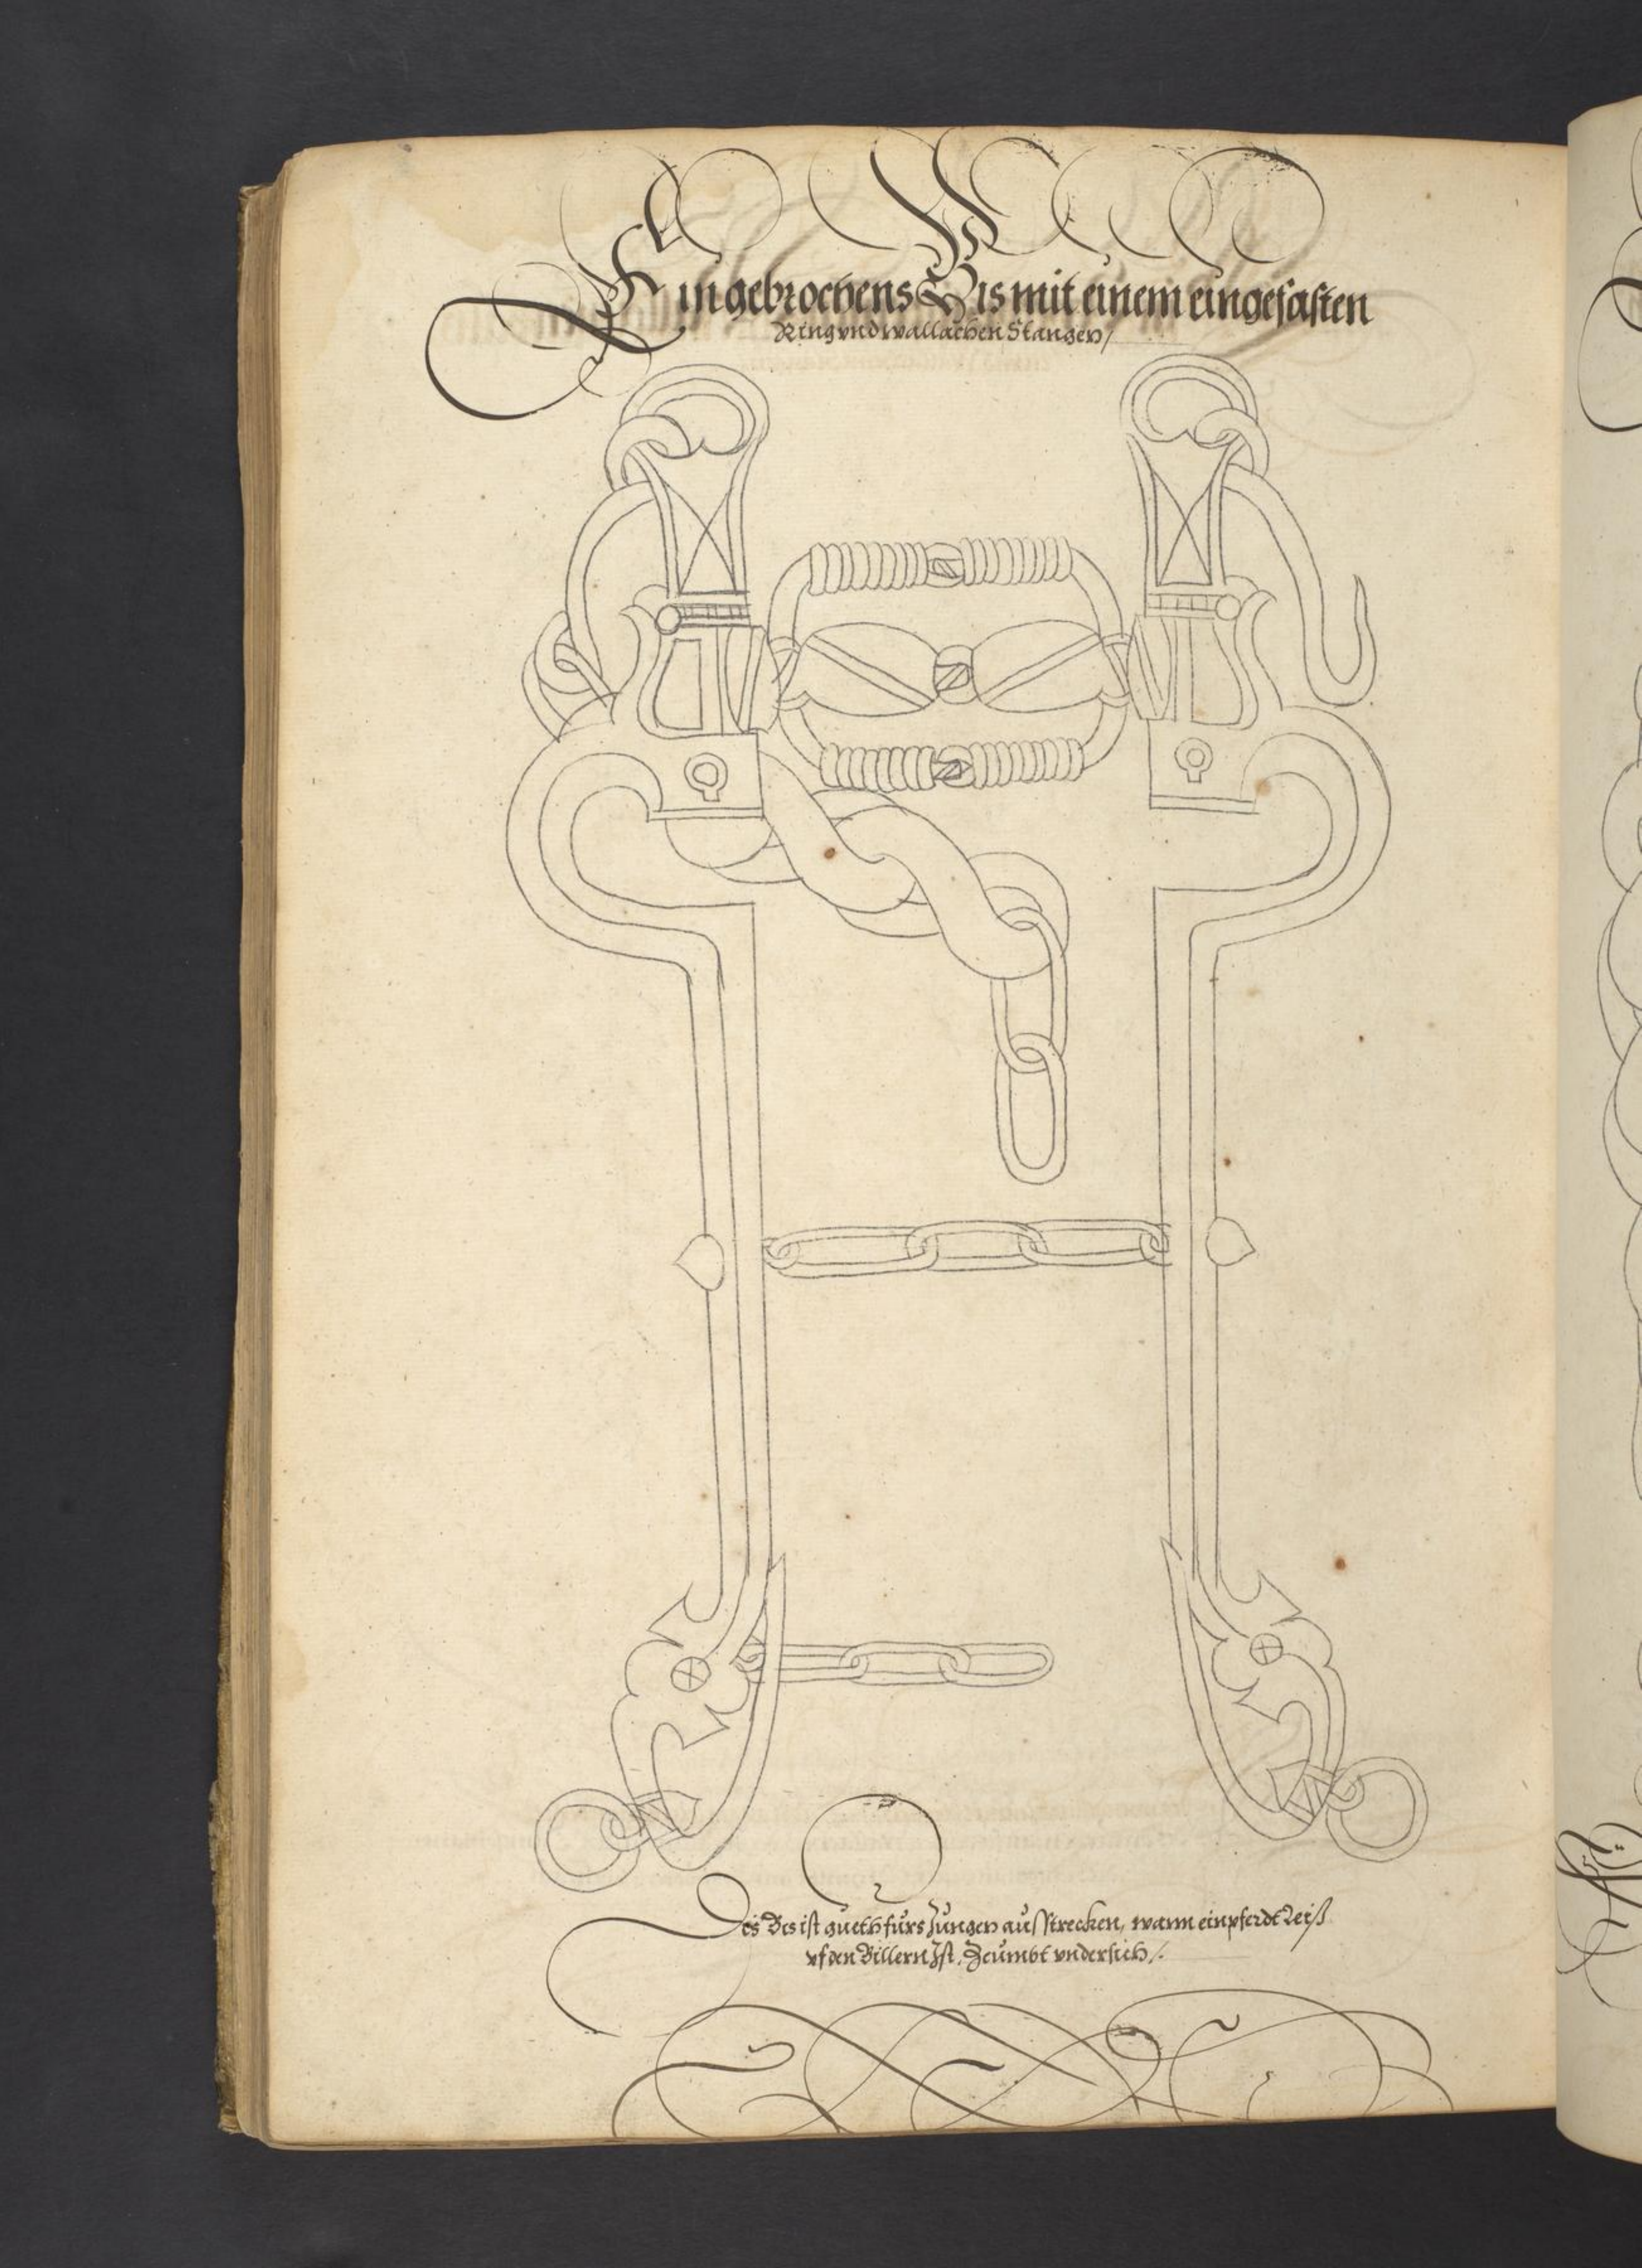 Ein gebrochens Bis mit einem eingefasten
Ring vnd wallachen Stangen /
Dis Bis ist gueth fürs Zungen ausstrecken, wann ein pferdt Reiß
vf den Billern Ist, Zeümbt vndersich /.